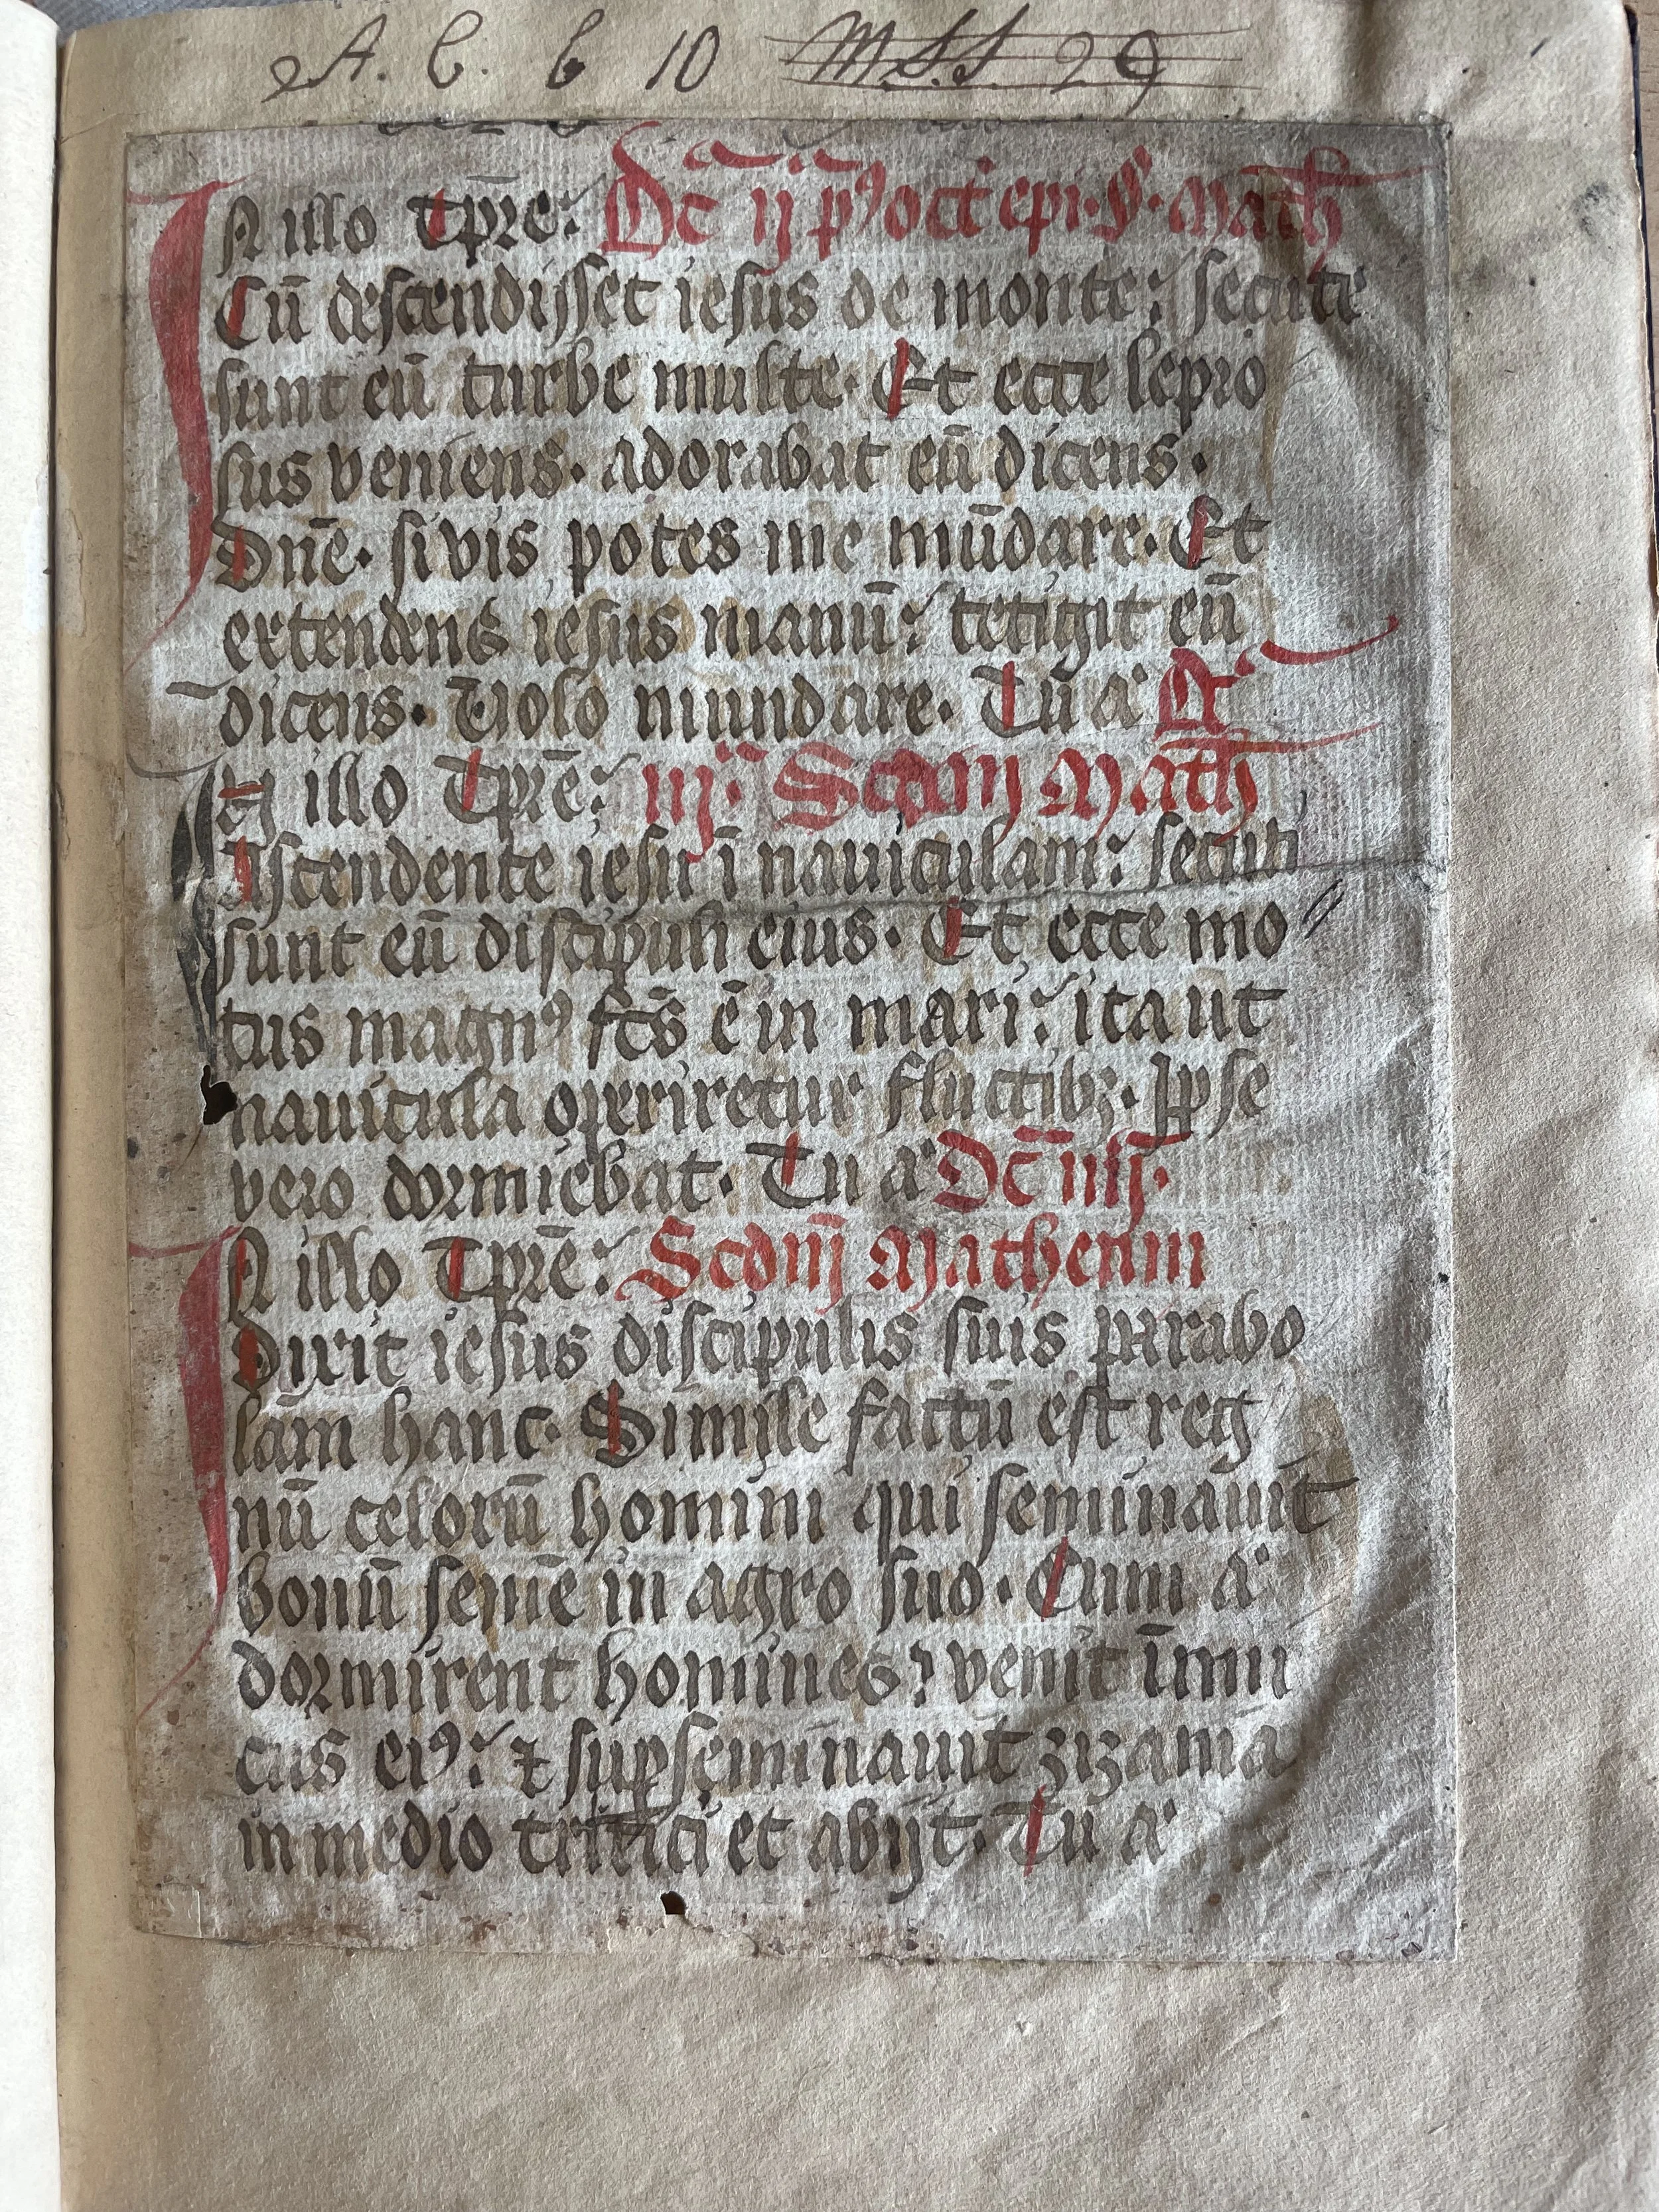 A. C. C 10 MSS 29
IN illo Tp̄re: Dc̄ ij pꝰ oct epi. S. Math
Cū descendisset iesus de monte: secute
sunt eū turbe multe. Et ecce lepro
sus veniens. adorabat eū dicens.
Dn̄e. si vis potes me mūdare. Et
extendens iesus manū: tetigit eū
dicens. Volo mundare. Tū a
illo Tp̄re: iij. Scdm Math
Ascendente iesu ī nauiculam: secuti
sunt eū discipuli eius. Et ecce mo
tus magnꝰ fcs̄ ē in mari: ita ut
nauicula operiretur fluctibꝫ. Ipse
vero dormiebat. Tu a Dc̄ iiij.
IN illo Tp̄re: Scdm Matheum
Dixit iesus discipulis suis parabo
lam hanc. Simile factū est reg
nū celorū homini qui seminauit
bonū semē in agro suo. Cum a
dormirent homines: venit īimi
cus eiꝰ: ⁊ suꝑseminauit zizania
in medio tritici et abijt. Tu a